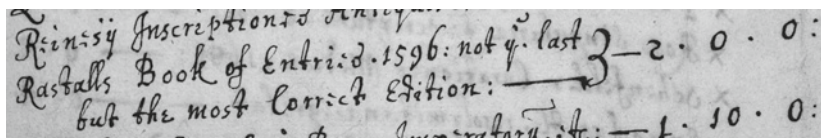 Reinesij Inscriptiones Antiquae
Rastalls Book of Entries. 1596: not yͤ. last } — 2 . 0 . 0:
but the most Correct Edition:
Imperatory — 1 . 10 . 0: